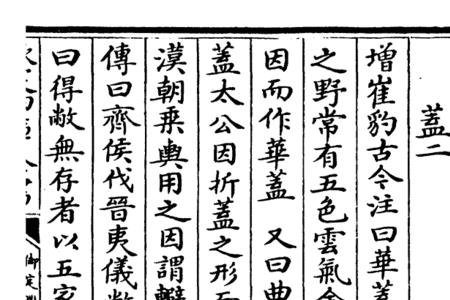 蓋二
增崔豹古今注曰華蓋
之野常有五色雲氣金
因而作華蓋 又曰曲
蓋太公因折蓋之形而
漢朝乘輿用之因謂
傳曰齊侯伐晉夷儀敝
曰得敝無存者以五家
御定